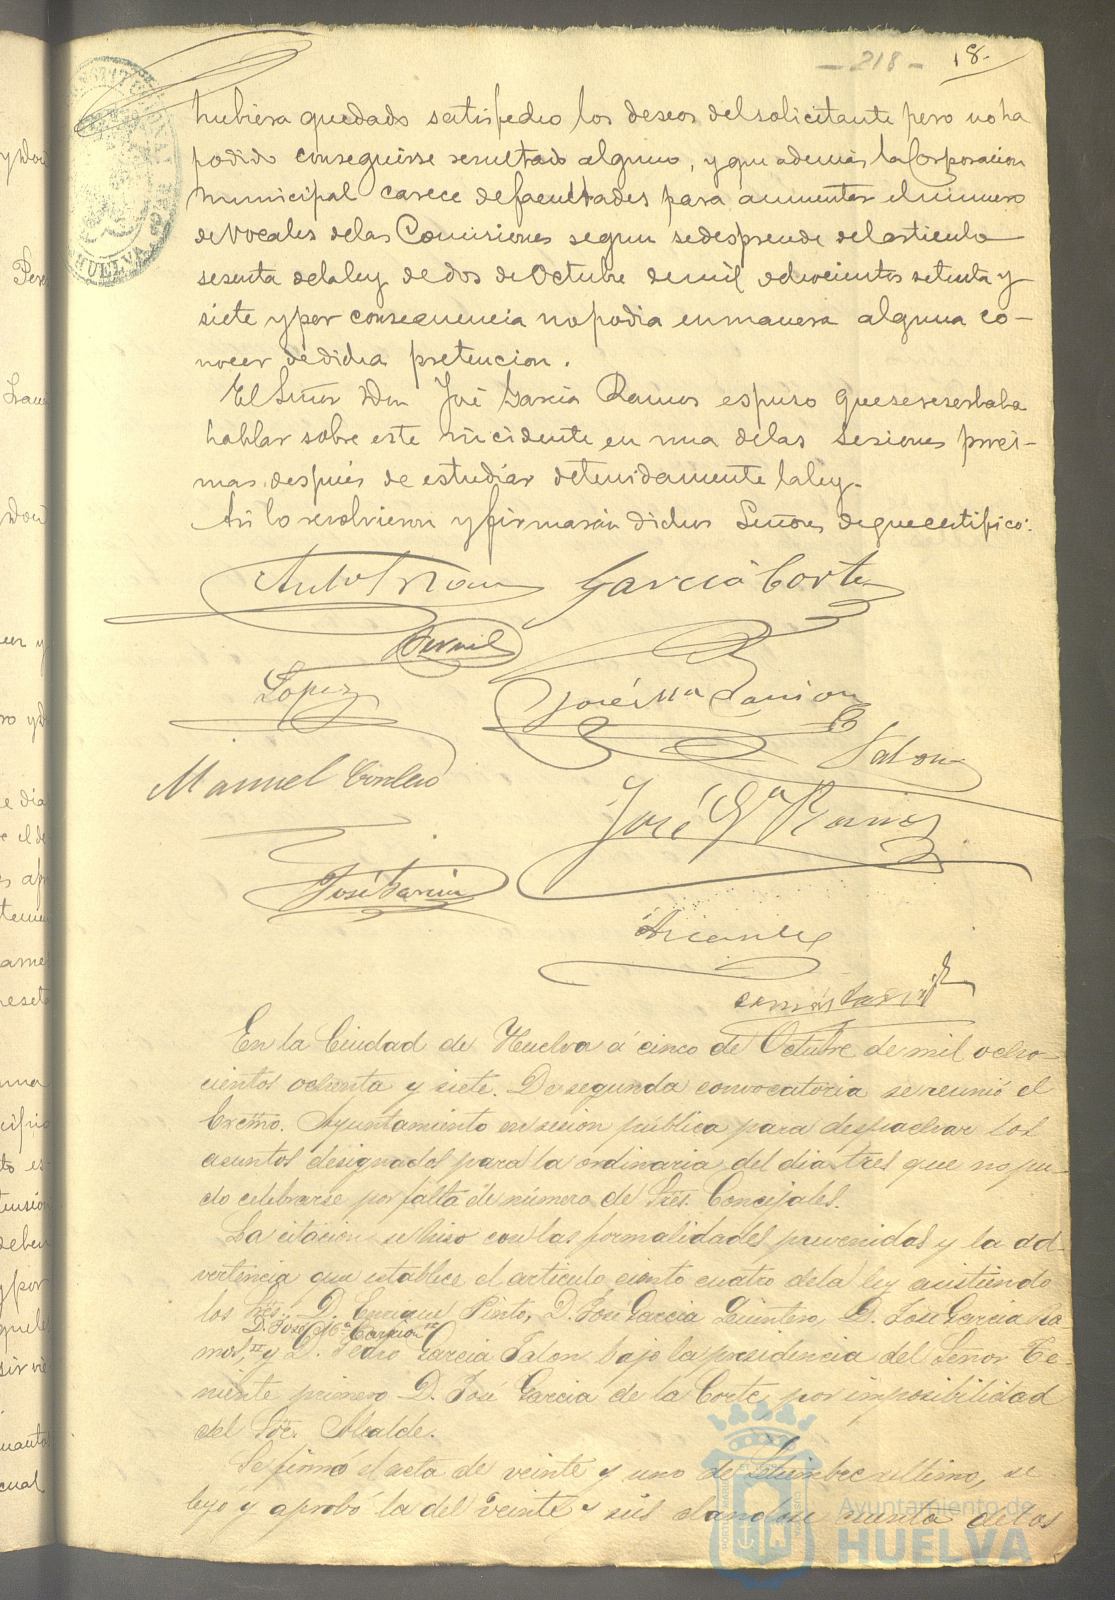 - 218 - 18.
hubiera quedado satisfecho los deseos del solicitante pero no ha
podido conseguirse resultado alguno, y que además la Corporacion
Municipal carece de facultades para aumentar el numero
de Vocales de las Comisiones segun se desprende del articulo
sesenta de la ley de dos de Octubre de mil ochocientos setenta y
siete y por consecuencia no podia en manera alguna co-
nocer de dicha pretencion.
El Señor Don José Garcia Ramos espuso que se reserbaba
hablar sobre este incidente en una de las sesiones proxi-
mas despues de estudiar detenidamente la ley.
Asi lo resolvieron y firmarán dichos Señores de que certifico:
Garcia Corte
Lopez José Mª Carrion
Manuel Cordero Talon
José Gª Ramos
José Garcia
En la Ciudad de Huelva á cinco de Octubre de mil ocho-
cientos ochenta y siete. De segunda convocatoria se reunió el
Excmo. Ayuntamiento en sesion pública para despachar los
asuntos designados para la ordinaria del dia tres que no pu-
do celebrarse por falta de número de Sres. Concejales.
La citacion se hizo con las formalidades prevenidas y la ad-
vertencia que establece el articulo ciento cuatro de la ley asistiendo
los Sres. D. Enrique Pinto, D. José Garcia Quintero, D. José Garcia Ra-
D. José Mª Carrion
mos, y D. Pedro Garcia Talon bajo la presidencia del Señor Te-
niente primero D. José Garcia de la Corte, por imposibilidad
del Sr. Alcalde.
Se firmó el acta de veinte y uno de Setiembre ultimo, se
leyó y aprobó la del veinte y seis dandose cuenta de los
HUELVA
Ayuntamiento de
HUELVA